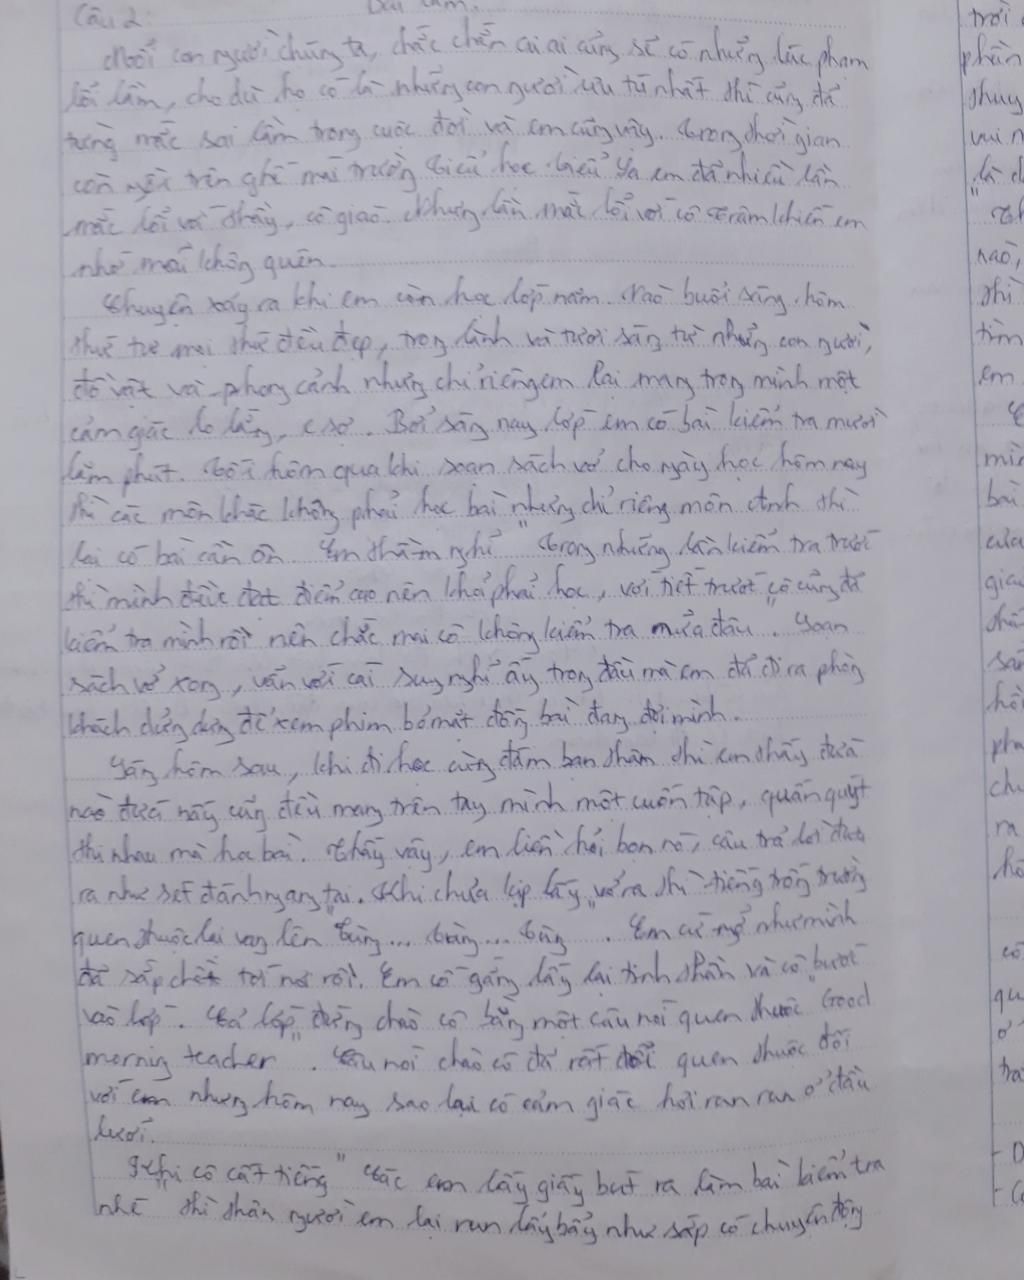 Câu 2: Bài làm.
Mỗi con người chúng ta, chắc chắn cũ ai cũng sẽ có những lúc phạm
lỗi lầm, cho dù họ có là những con người ưu tú nhất thì cũng đã
từng mắc sai lầm trong cuộc đời và em cũng vậy. Trong thời gian
còn ngồi trên ghế mái trường tiểu học em đã nhiều lần
mắc lỗi với thầy, cô giáo. Nhưng lần mắc lỗi với cô Trâm khiến em
nhớ mãi không quên.
Chuyện xảy ra khi em còn học lớp năm. Vào buổi sáng hôm
thứ tư mọi thứ đều đẹp, trong lành và tươi sáng từ những con người,
đồ vật và phong cảnh nhưng chỉ riêng em lại mang trong mình một
cảm giác lo lắng, e sợ. Bởi sáng nay lớp em có bài kiểm tra mười
lăm phút. Tối hôm qua khi soạn sách vở cho ngày học hôm nay
thì các môn khác không phải học bài nhưng chỉ riêng môn Anh thì
lại có bài cần ôn. Em thầm nghĩ "Trong những lần kiểm tra trước
thì mình đều đạt điểm cao nên khỏi phải học, với tiết trước cô cũng đã
kiểm tra mình rồi nên chắc mai cô không kiểm tra nữa đâu". Soạn
sách vở xong, vẫn với cái suy nghĩ ấy trong đầu mà em đã đi ra phòng
khách dửng dưng để xem phim bỏ mặt đống bài đang đợi mình.
Sáng hôm sau, khi đi học cùng đám bạn thân thì em thấy đứa
nào đứa nấy cũng đều mang trên tay mình một cuốn tập, quấn quýt
thi nhau mà học bài. Thấy vậy, em liền hỏi bọn nó, câu trả lời đưa
ra như sét đánh ngang tai. Khi chưa kịp lấy vở ra thì tiếng trống trường
quen thuộc lại vang lên "Tùng... tùng... tùng". Em cứ ngỡ như mình
đã sắp chết tới nơi rồi. Em cố gắng lấy lại tinh thần và cố bước
vào lớp. Cả lớp đứng chào cô bằng một câu nói quen thuộc "Good
mornig teacher". Câu nói chào cô đã rất đỗi quen thuộc đối
với em nhưng hôm nay sao lại có cảm giác hơi ran ran ở đầu
lưỡi.
Khi cô cất tiếng "Các em lấy giấy bút ra làm bài kiểm tra
nhé" thì thân người em lại run lẩy bẩy như sắp có chuyện động